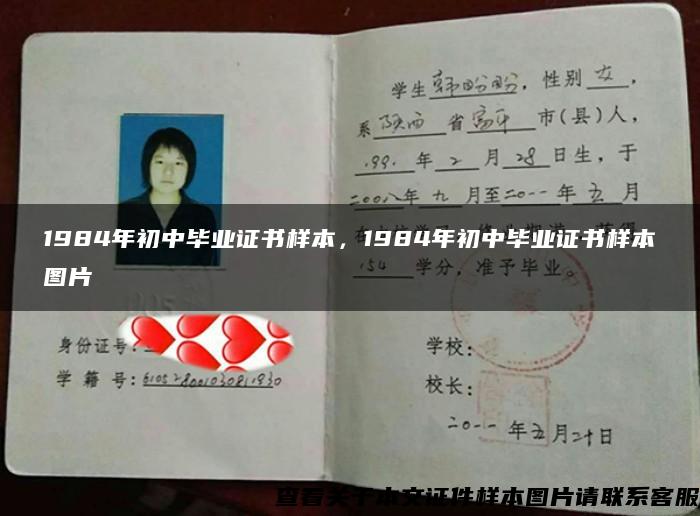 学生韩盼盼，性别女，
系陕西省富平市(县)人，
199.年2月28日生，于
二00八年九月至二0一一年五月
154学分，准予毕业。
1984年初中毕业证书样本，1984年初中毕业证书样本
图片
身份证号：
学籍号：
学校：
校长：
二0一一年五月二十日
查看关于本文证件样本图片请联系客服